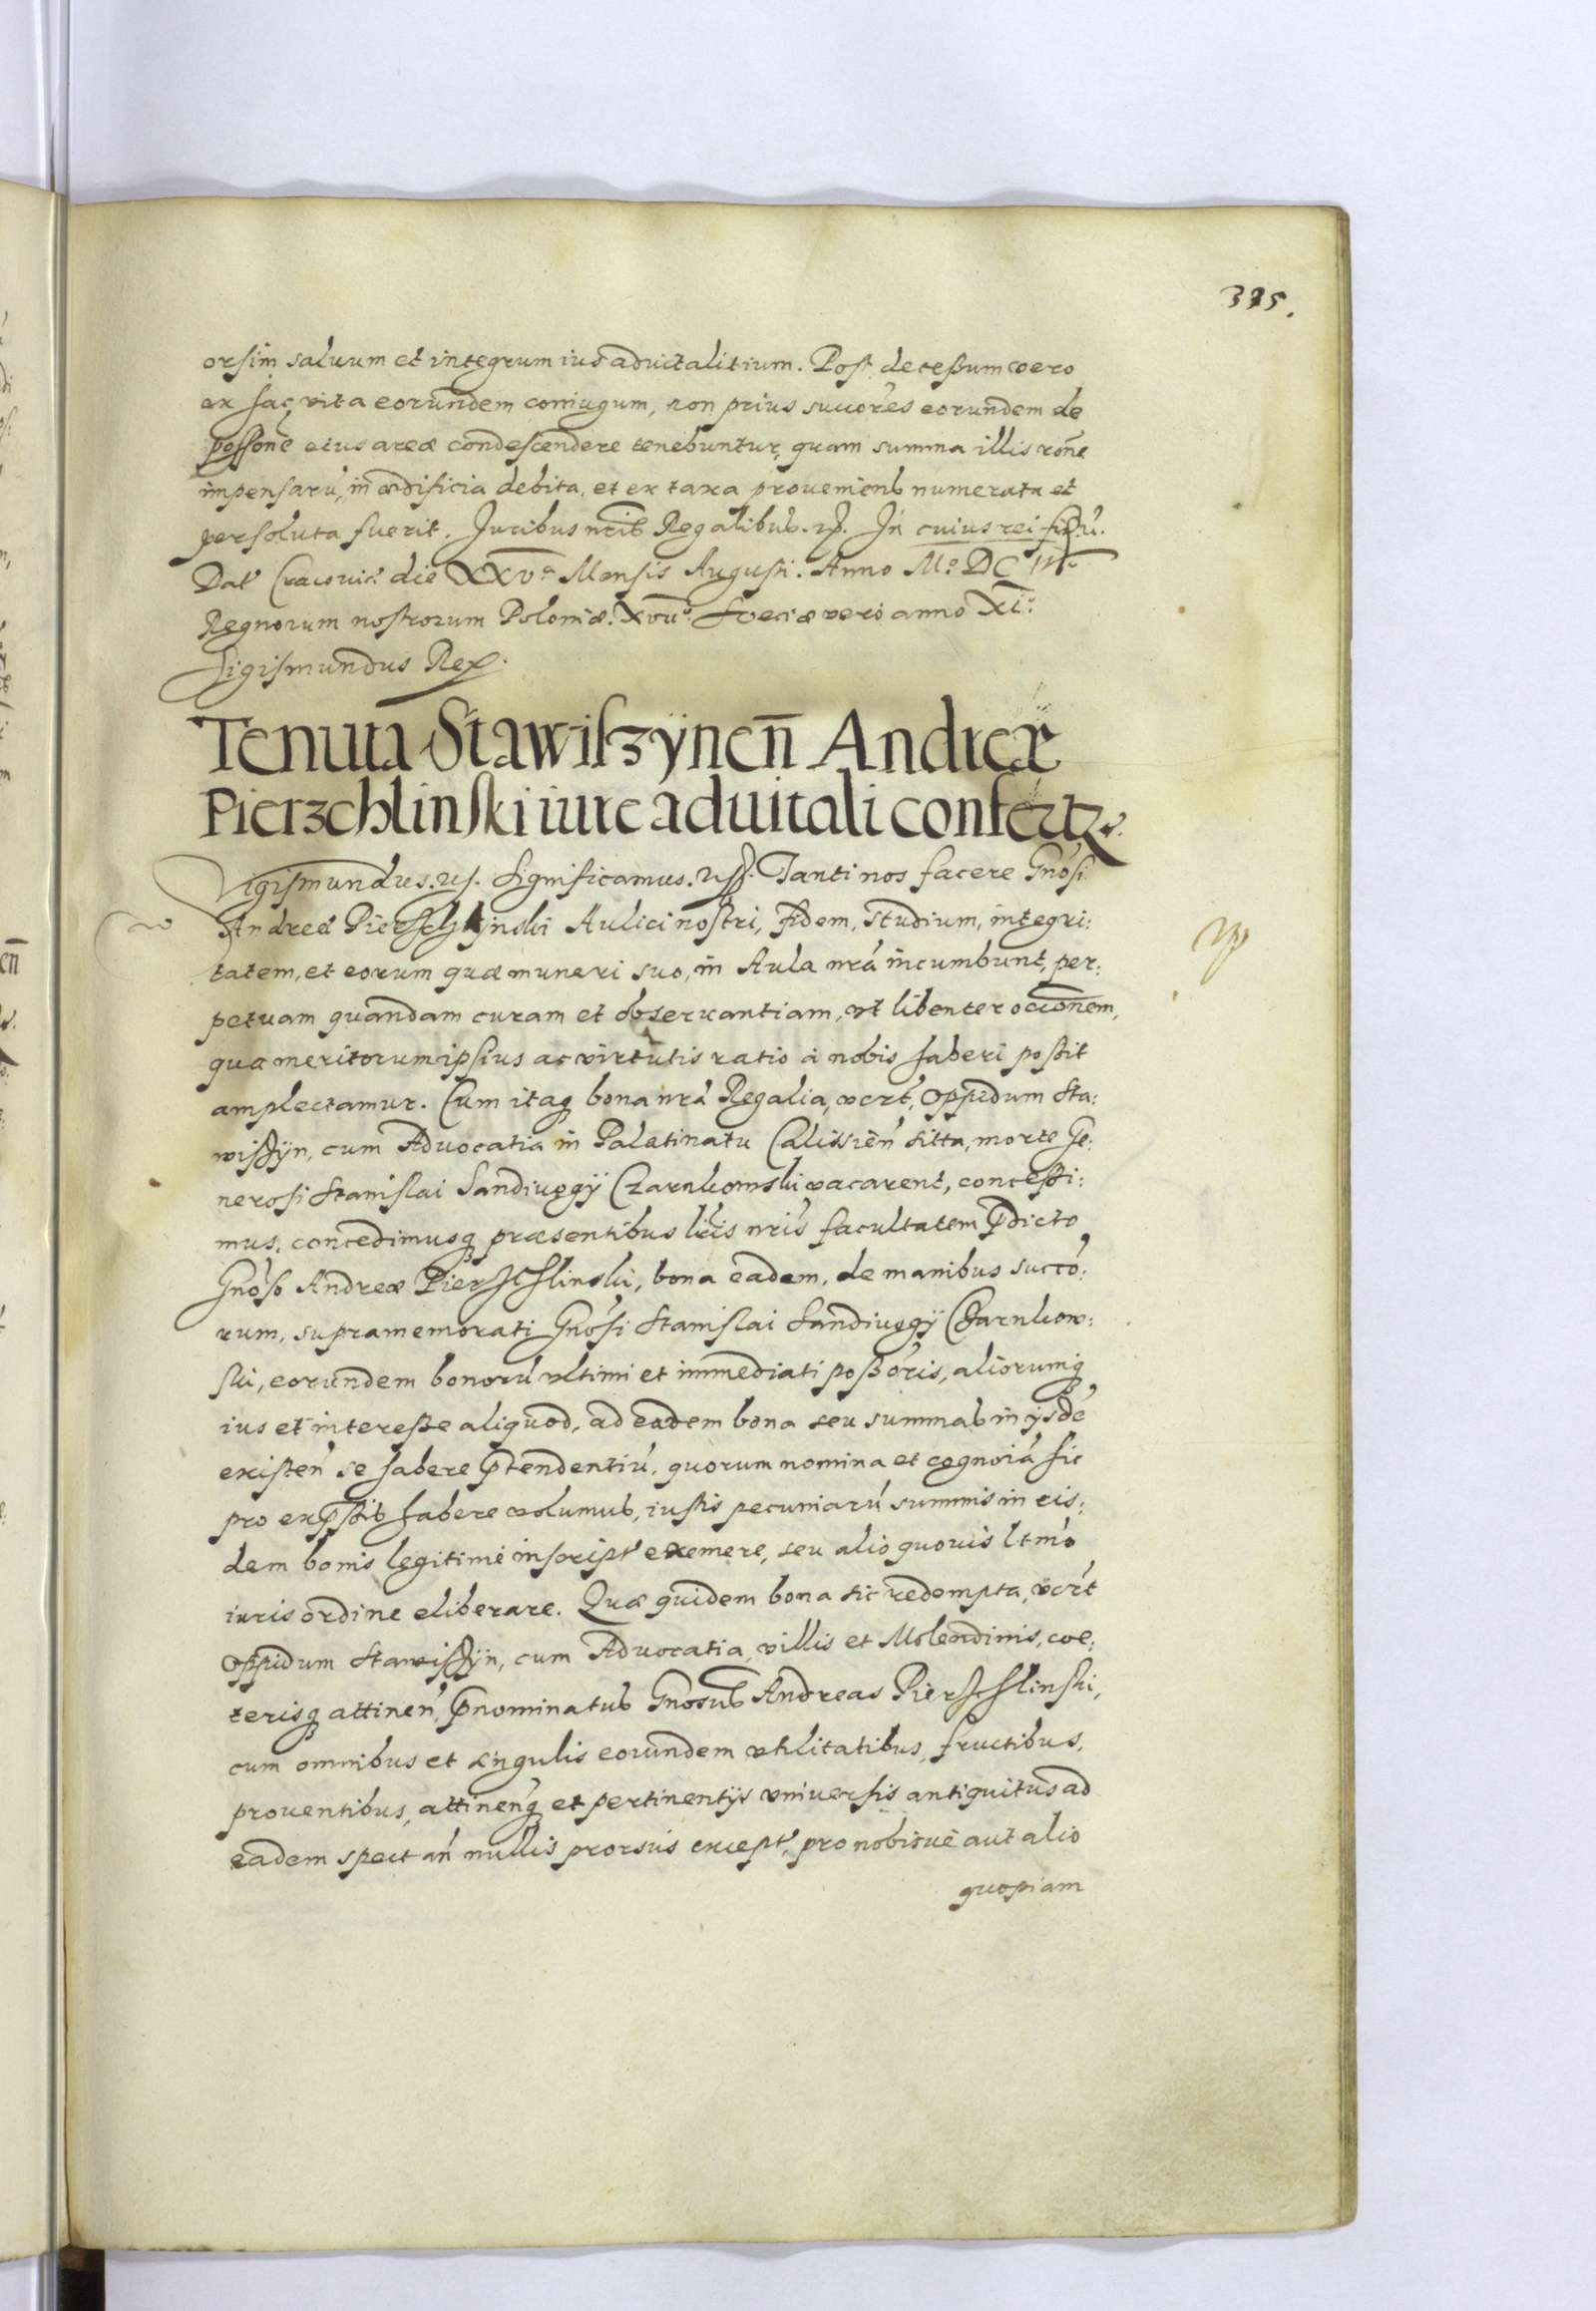 375.
orsim saluum et integrum ius aduitalitium. Post decessum vero
ex hac vita eorundem coniugum, non prius succores eorundem de
possone eius areæ condescendere tenebuntur, quam summa illis rone
impensarū, in ædificia debita, et ex taxa proueniens numerata et
persoluta fuerit. Juribus nris Regalibus. In cuius rei fid.
Dat Cracoviæ die XXVa Mensis Augusti. Anno Mo DC
Regnorum nostrorum Poloniæ. Sveciæ vero anno XIo
Sigismundus Rex.
Tenuta Stawiszÿnen̄ Andreæ
Pierzchlinski iure aduitali confertz.
Sigismundus. Significamus. Tanti nos facere Gnosi
Andreæ Pierzchlynski Aulici nostri, fidem, studium, integri:
tatem, et eorum quæ muneri suo, in Aula nrā incumbunt, per:
petuam quandam curam et obseruantiam, vt libenter occionem,
qua meritorum ipsius ac virtutis ratio à nobis haberi possit
amplectamur. Cum itaq bona nrā Regalia, vcrt, Oppidum Sta:
wiszÿn, cum Aduocatia in Palatinatu Calissien sitta, morte Ge:
nerosi Stanislai Sandiuogÿ Czarnkowski vacarent, concessi:
mus, concedimusq præsentibus lris nris facultatem pdicto
Gnoso Andreæ Pierzchlinski, bona eadem, de manibus succo:
rum, supramemorati Gnosi Stanislai Sandiuogÿ Czarnkow:
ski, eorundem bonorū vltimi et immediati possoris, aliorumq
ius et interesse aliquod, ad eadem bona seu summas in ysdē
existen se habere ptendentiū, quorum nomina et cognoiā hic
pro expssis habere volumus, iustis pecuniarū summis in eis:
dem bonis legitimè inscript exemere, seu alio quouis ltmo
iuris ordine eliberare. Quæ quidem bona sic redempta, vcrt
Oppidum Stawiszÿn, cum Aduocatia, villis et Molendinis, coe:
terisq attinen, pnominatus Gnosus Andreas Pierzchlinski,
cum omnibus et singulis eorundem vtilitatibus, fructibus,
prouentibus, attinenq et pertinentÿs vniuersis antiquitus ad
eadem spectan nullis prorsus except, pro nobisuè aut alio
quopiam